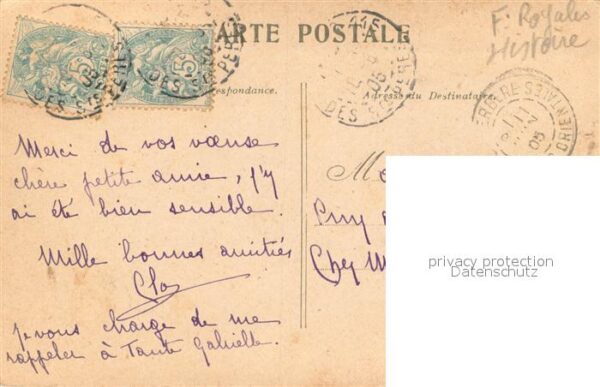 CARTE POSTALE
F. Royales
Histoire
respondance.
Adresse du Destinataire
PARIS
05
DES Sts PERES
ORIENTALES
05
Merci de vos vœuse
chère petite amie, j'y
ai été bien sensible.
Mille bonnes amitiés
Clo
je vous charge de me
rappeler à Tante Gabrielle.
M
Puy
Chez M
privacy protection
Datenschutz